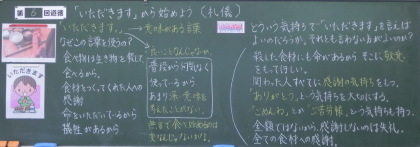 第6回道徳
「いただきます」から始めよう（礼儀）
「いただきます。」
などこの言葉を使うの?
食べ物は生き物を殺して
食べるから。
食材をつくってくれた人への
感謝
命をいただいているから
犠牲があるから
いただきます
意味がある言葉
普段から何気なく
使っているから
あまり深い意味を
考えたことがない。
無言で食べ始めるのは
変なんじゃないかな。
どういう気持ちで「いただきます」を言えば
よいのだろうか。それとも言わない方がよいのか?
殺した食材にも命があるから そこに敬意
をもってほしい。
関わった人すべてに感謝の気持ちをもつ。
「ありがとう」という気持ちを大切にする。
「ごめんね」とか「ご苦労様」という気持ちも持つ。
全額ではないから、感謝しないのは失礼。
全ての食材への感謝。